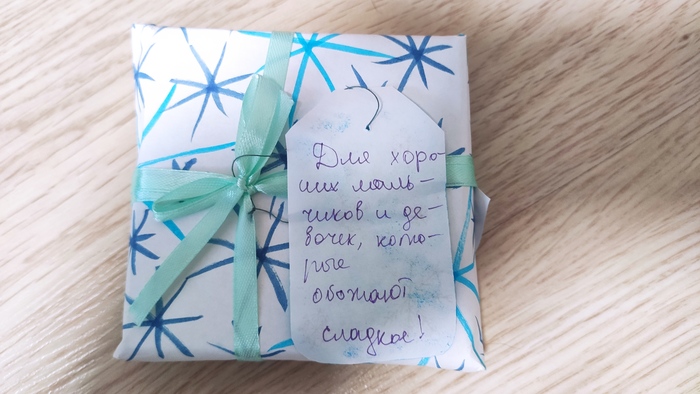 Для хоро
ших маль-
чиков и де-
вочек, кото-
рые
обожают
сладкое!